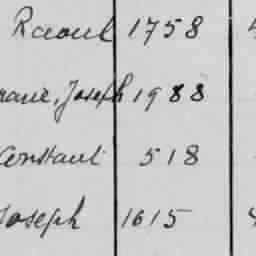 Raoul 1758
Joseph 1988
Constant 518
Joseph 1615